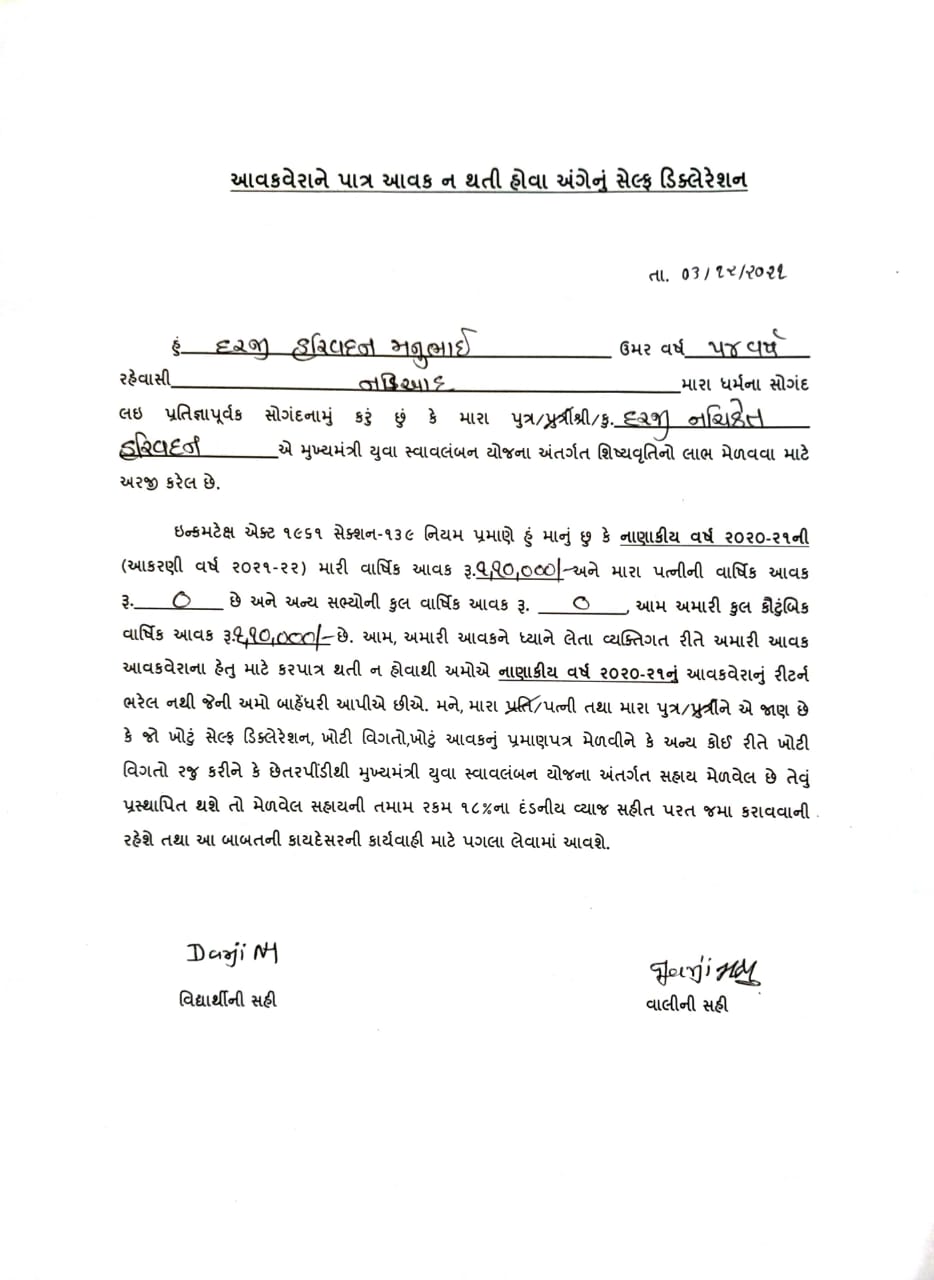 આવકવેરાને પાત્ર આવક ન થતી હોવા અંગેનું સેલ્ફ ડિક્લેરેશન
તા. ૦૩/૧૨/૨૦૨૧
હું દરજી હરિવદન મનુભાઈ ઉમર વર્ષ ૫૪ વર્ષ
રહેવાસી નડિઆદ મારા ધર્મના સોગંદ
લઇ પ્રતિજ્ઞાપૂર્વક સોગંદનામું કરું છું કે મારા પુત્ર/પુત્રીશ્રી/કુ. દરજી નચિકેત
હરિવદન એ મુખ્યમંત્રી યુવા સ્વાવલંબન યોજના અંતર્ગત શિષ્યવૃતિનો લાભ મેળવવા માટે
અરજી કરેલ છે.
ઇન્કમટેક્ષ એક્ટ ૧૯૬૧ સેક્શન-૧૩૯ નિયમ પ્રમાણે હું માનું છુ કે નાણાકીય વર્ષ ૨૦૨૦-૨૧ની
(આકરણી વર્ષ ૨૦૨૧-૨૨) મારી વાર્ષિક આવક રૂ.૧,૧૦,૦૦૦/- અને મારા પત્નીની વાર્ષિક આવક
રૂ. ૦ છે અને અન્ય સભ્યોની કુલ વાર્ષિક આવક રૂ. ૦ , આમ અમારી કુલ કૌટુંબિક
વાર્ષિક આવક રૂ.૧,૧૦,૦૦૦/- છે. આમ, અમારી આવકને ધ્યાને લેતા વ્યક્તિગત રીતે અમારી આવક
આવકવેરાના હેતુ માટે કરપાત્ર થતી ન હોવાથી અમોએ નાણાકીય વર્ષ ૨૦૨૦-૨૧નું આવકવેરાનું રીટર્ન
ભરેલ નથી જેની અમો બાહેંધરી આપીએ છીએ. મને, મારા પતિ/પત્ની તથા મારા પુત્ર/પુત્રીને એ જાણ છે
કે જો ખોટું સેલ્ફ ડિક્લેરેશન, ખોટી વિગતો,ખોટું આવકનું પ્રમાણપત્ર મેળવીને કે અન્ય કોઈ રીતે ખોટી
વિગતો રજુ કરીને કે છેતરપીંડીથી મુખ્યમંત્રી યુવા સ્વાવલંબન યોજના અંતર્ગત સહાય મેળવેલ છે તેવું
પ્રસ્થાપિત થશે તો મેળવેલ સહાયની તમામ રકમ ૧૮%ના દંડનીય વ્યાજ સહીત પરત જમા કરાવવાની
રહેશે તથા આ બાબતની કાયદેસરની કાર્યવાહી માટે પગલા લેવામાં આવશે.
Darji NH
વિદ્યાર્થીની સહી
વાલીની સહી